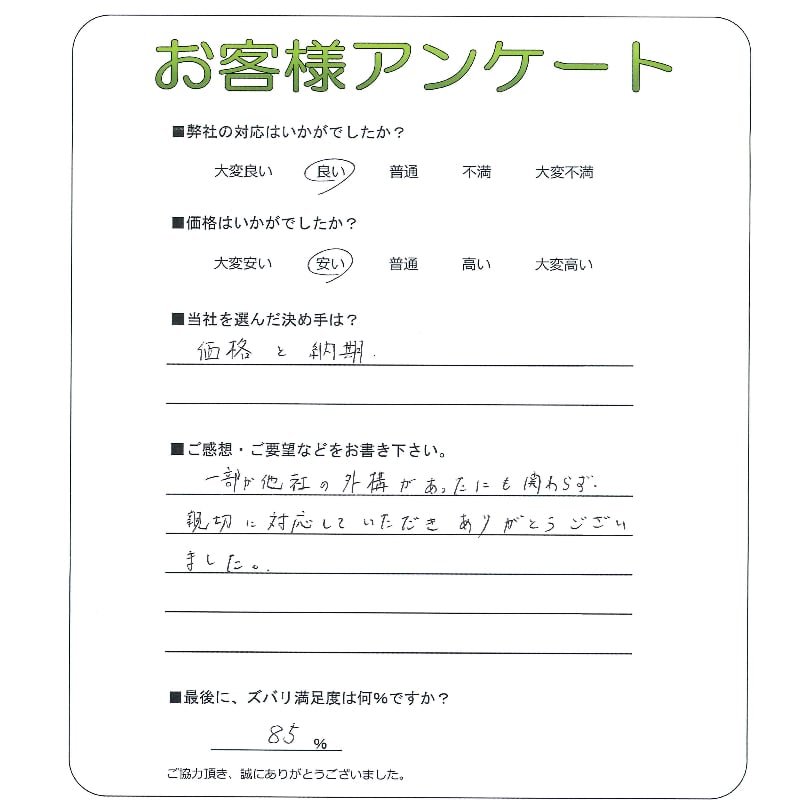 お客様アンケート
■弊社の対応はいかがでしたか？
大変良い 良い 普通 不満 大変不満
■価格はいかがでしたか？
大変安い 安い 普通 高い 大変高い
■当社を選んだ決め手は？
価格と納期.
■ご感想・ご要望などをお書き下さい。
一部が他社の外構があったにも関わらず.
親切に対応していただきありがとうござい
ました。
■最後に、ズバリ満足度は何%ですか？
85 %
ご協力頂き、誠にありがとうございました。